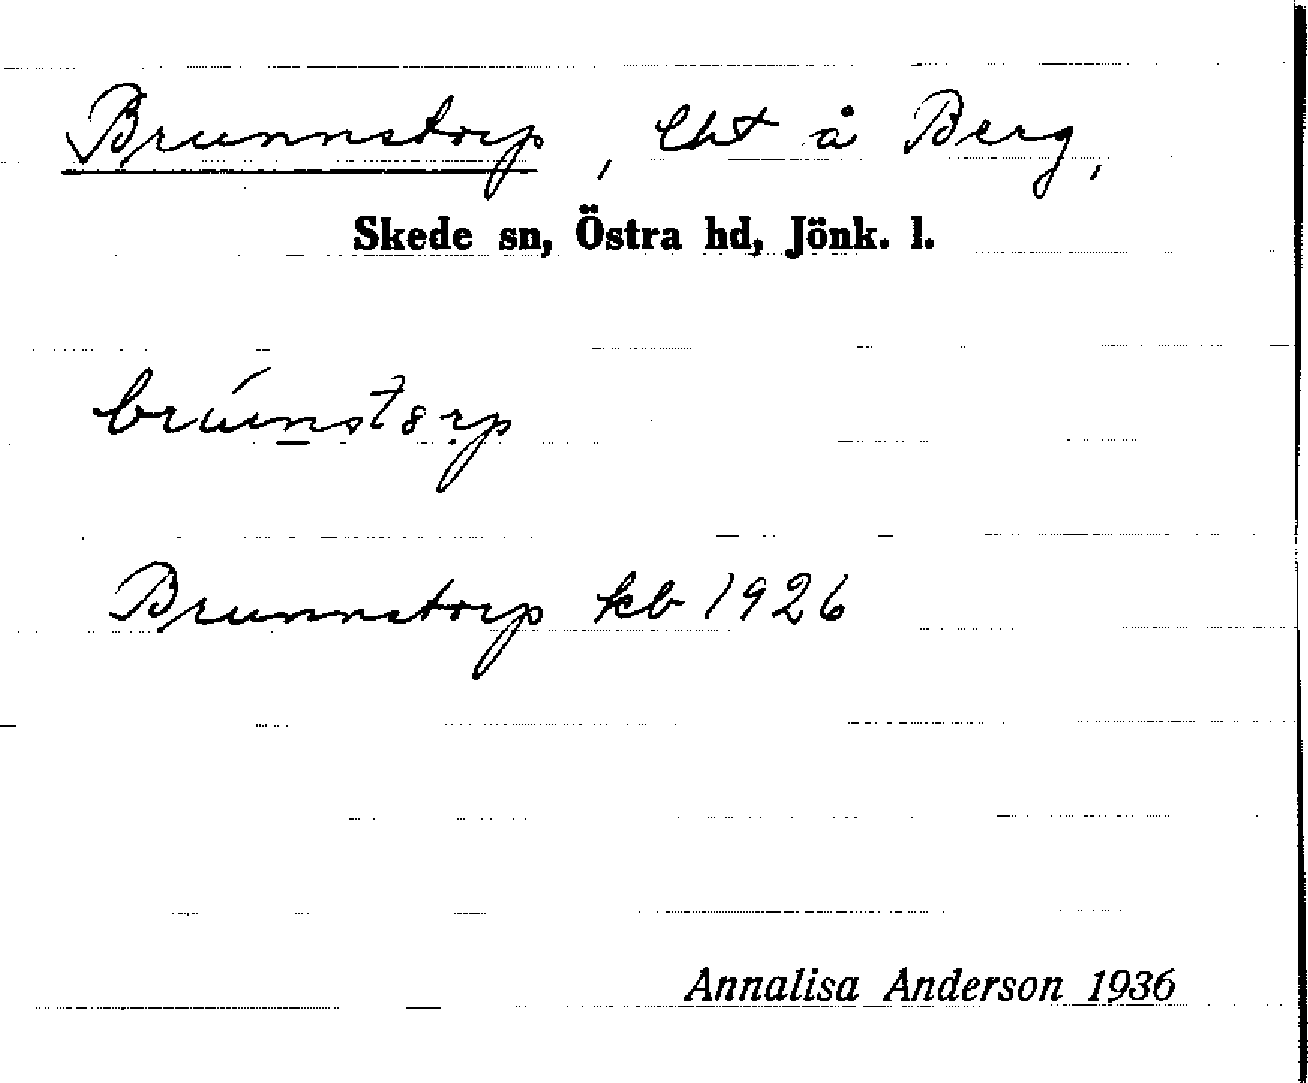 Brunnstorp, lht å Berg,
Skede sn, Östra hd, Jönk. l.
brúnstorp
Brunnstorp kb 1926
Annalisa Anderson 1936